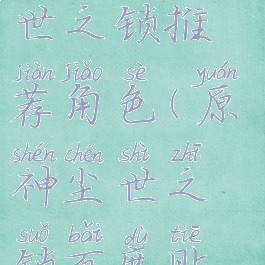 世之锁推
jiàn jiǎo sè yuán
荐角色(原
shén chén shì zhī
神尘世之
suǒ bǎi dù tiē
锁百度贴